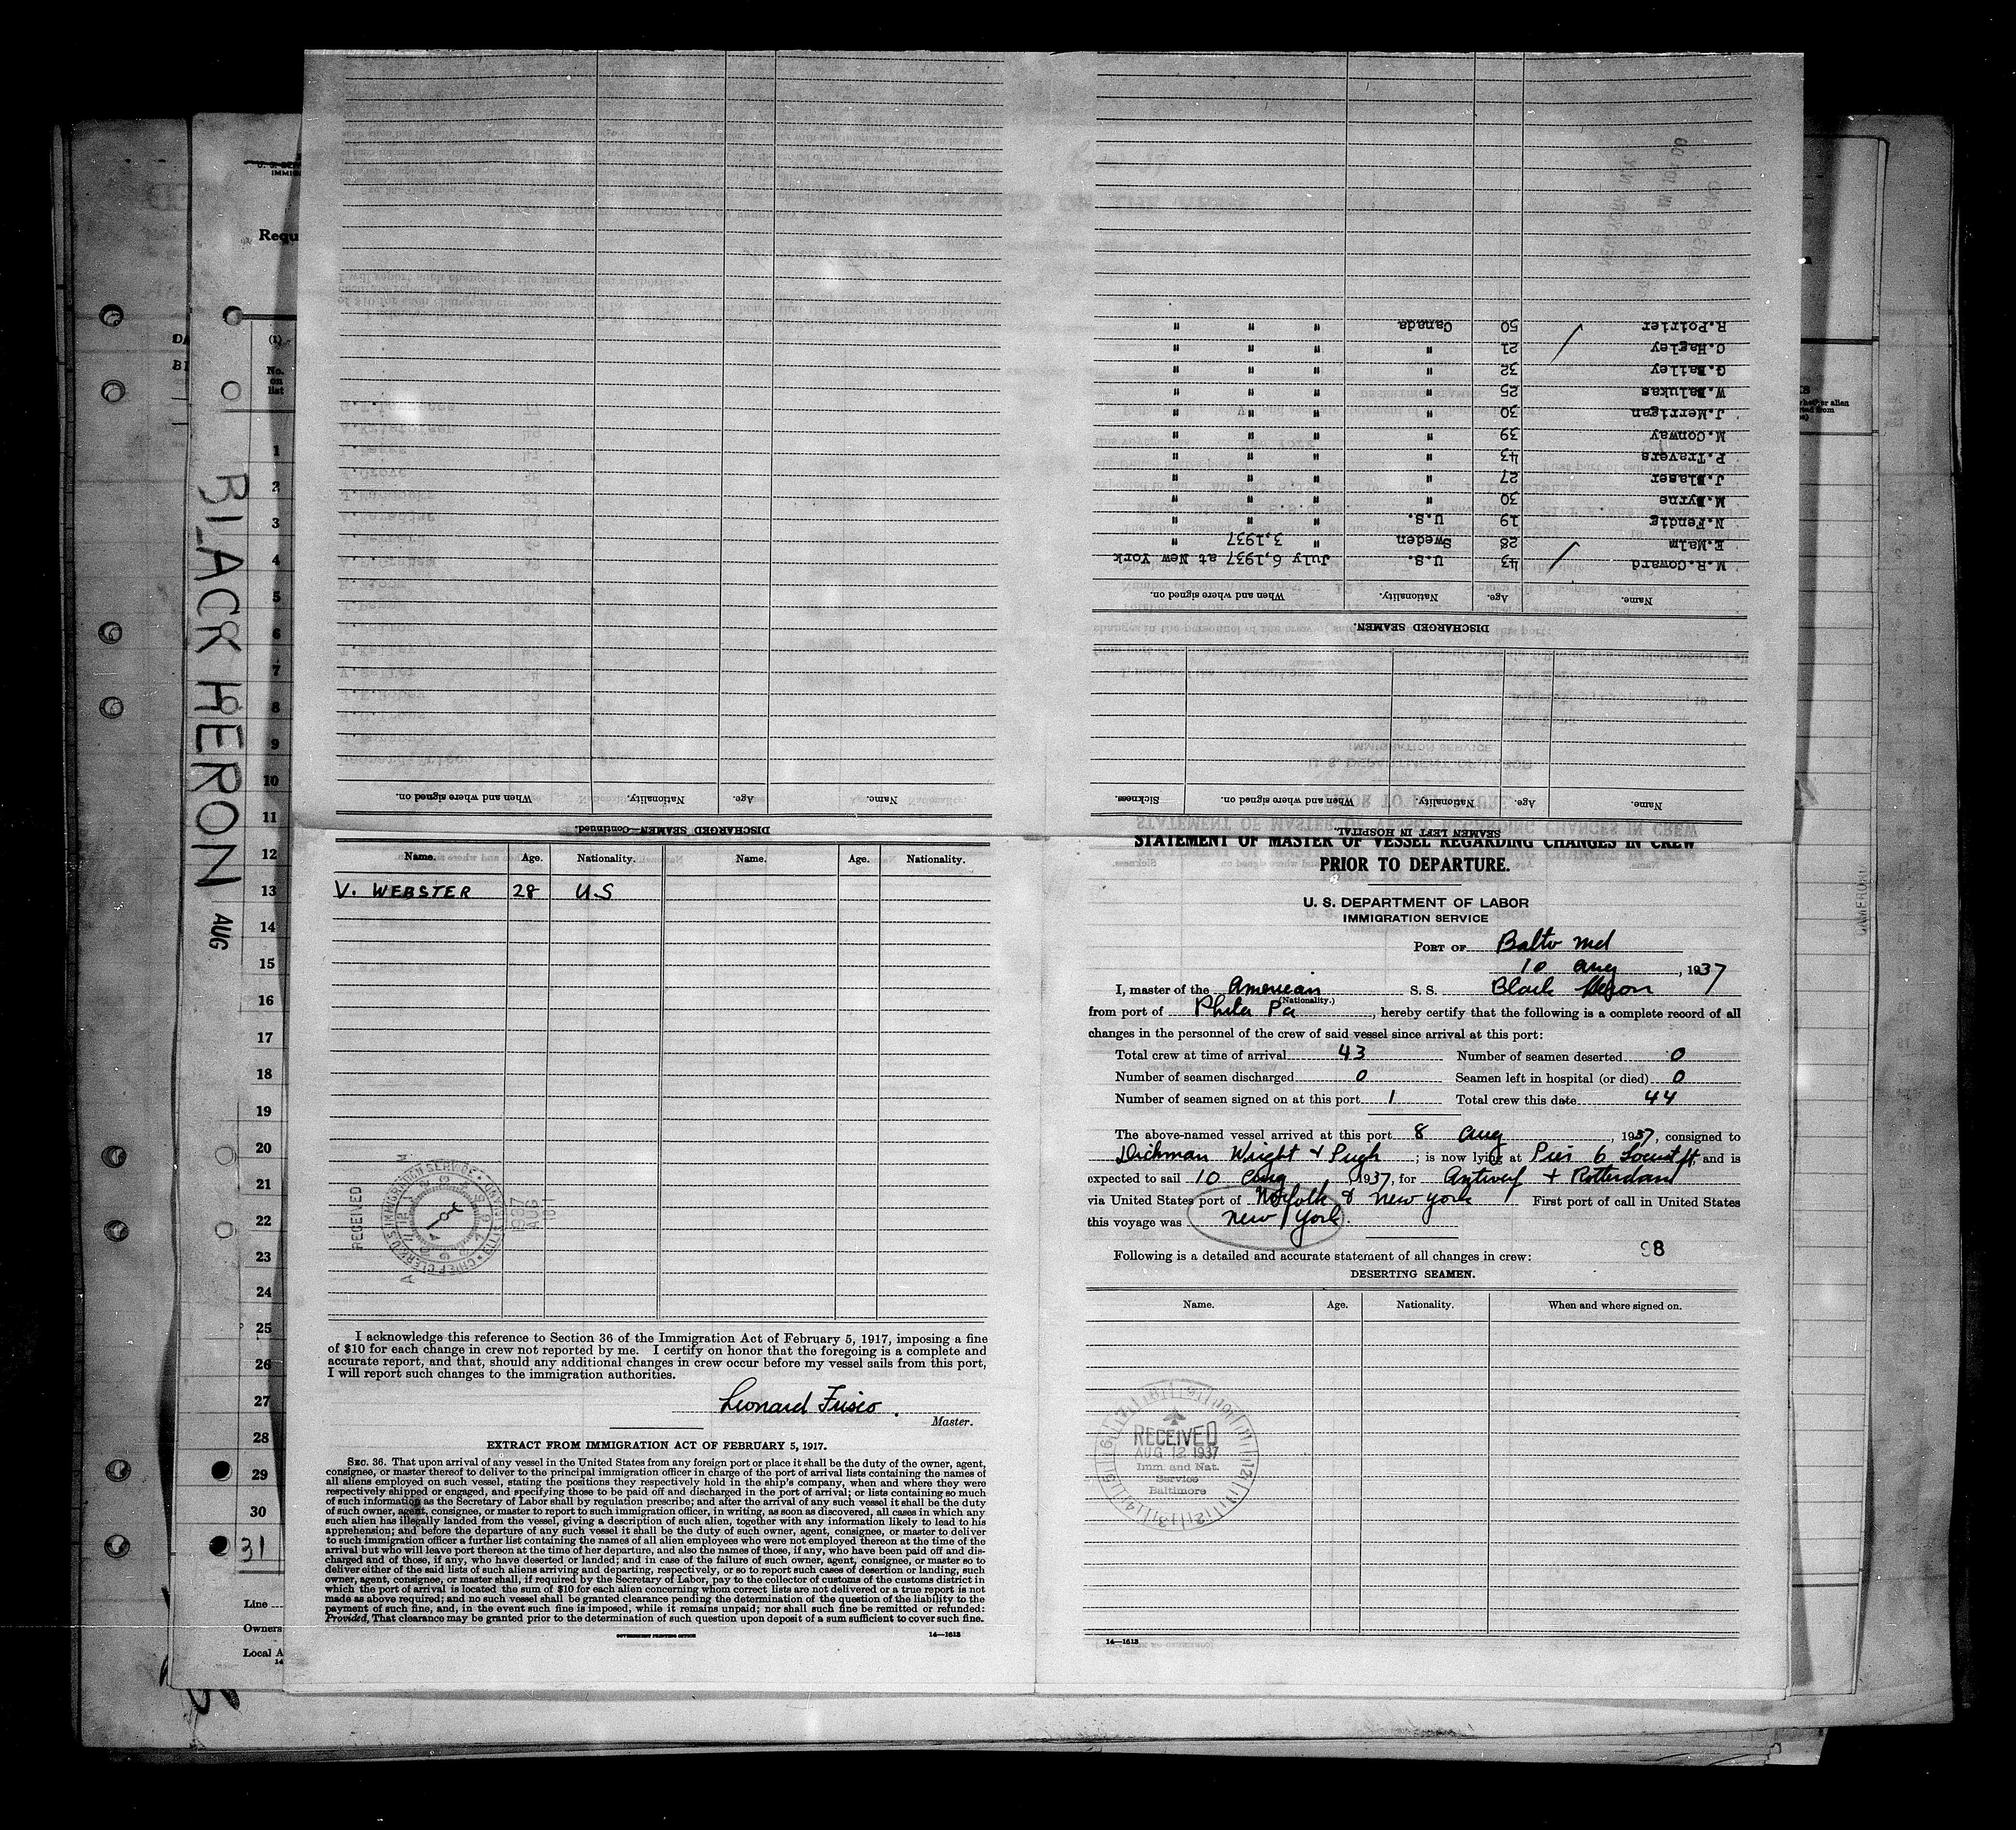 BLACK HERON
AUG
Requ
(1)
No.
on
list
1
2
3
4
5
6
7
8
9
10
11
12
13
14
15
16
17
18
19
20
21
22
23
24
25
26
27
28
29
30
31
Line
Owners
Local A
SEAMEN LEFT IN HOSPITAL.
Name. Age. Nationality. When and where signed on. Sickness.
DISCHARGED SEAMEN.
Name. Age. Nationality. When and where signed on.
M.R.Coward 43 U.S. July 6,1937 at New York
E.Malm 28 Sweden " 3,1937 "
N.Fendig 19 U.S. " " "
M.Byrne 30 " " " "
J.Blaser 27 " " " "
P.Travers 43 " " " "
M.Conway 39 " " " "
J.Merrigan 30 " " " "
W.Balukas 25 " " " "
G.Bailey 32 " " " "
C.Hagley 21 " " " "
R.Poirier 50 Canada " " "
DISCHARGED SEAMEN—Continued.
Name. Age. Nationality. When and where signed on.
Name. Age. Nationality. Name. Age. Nationality.
V. WEBSTER 28 US
RECEIVED
AUG
1937
I acknowledge this reference to Section 36 of the Immigration Act of February 5, 1917, imposing a fine
of $10 for each change in crew not reported by me. I certify on honor that the foregoing is a complete and
accurate report, and that, should any additional changes in crew occur before my vessel sails from this port,
I will report such changes to the immigration authorities.
Leonard Frisco.
Master.
EXTRACT FROM IMMIGRATION ACT OF FEBRUARY 5, 1917.
SEC. 36. That upon arrival of any vessel in the United States from any foreign port or place it shall be the duty of the owner, agent,
consignee, or master thereof to deliver to the principal immigration officer in charge of the port of arrival lists containing the names of
all aliens employed on such vessel, stating the positions they respectively hold in the ship's company, when and where they were
respectively shipped or engaged, and specifying those to be paid off and discharged in the port of arrival; or lists containing so much
of such information as the Secretary of Labor shall by regulation prescribe; and after the arrival of any such vessel it shall be the duty
of such owner, agent, consignee, or master to report to such immigration officer, in writing, as soon as discovered, all cases in which any
such alien has illegally landed from the vessel, giving a description of such alien, together with any information likely to lead to his
apprehension; and before the departure of any such vessel it shall be the duty of such owner, agent, consignee, or master to deliver
to such immigration officer a further list containing the names of all alien employees who were not employed thereon at the time of the
arrival but who will leave port thereon at the time of her departure, and also the names of those, if any, who have been paid off and dis-
charged and of those, if any, who have deserted or landed; and in case of the failure of such owner, agent, consignee, or master so to
deliver either of the said lists of such aliens arriving and departing, respectively, or so to report such cases of desertion or landing, such
owner, agent, consignee, or master shall, if required by the Secretary of Labor, pay to the collector of customs of the customs district in
which the port of arrival is located the sum of $10 for each alien concerning whom correct lists are not delivered or a true report is not
made as above required; and no such vessel shall be granted clearance pending the determination of the question of the liability to the
payment of such fine, and, in the event such fine is imposed, while it remains unpaid; nor shall such fine be remitted or refunded:
Provided, That clearance may be granted prior to the determination of such question upon deposit of a sum sufficient to cover such fine.
GOVERNMENT PRINTING OFFICE 14—1613
STATEMENT OF MASTER OF VESSEL REGARDING CHANGES IN CREW
PRIOR TO DEPARTURE.
U. S. DEPARTMENT OF LABOR
IMMIGRATION SERVICE
PORT OF Balto Md
10 Aug, 1937
I, master of the American S. S. Black Heron
(Nationality.)
from port of Phila Pa, hereby certify that the following is a complete record of all
changes in the personnel of the crew of said vessel since arrival at this port:
Total crew at time of arrival 43 Number of seamen deserted 0
Number of seamen discharged 0 Seamen left in hospital (or died) 0
Number of seamen signed on at this port 1 Total crew this date 44
The above-named vessel arrived at this port 8 Aug, 1937, consigned to
Dichman Wright & Pugh; is now lying at Pier 6 Locust Pt and is
expected to sail 10 Aug, 1937, for Antwerp + Rotterdam
via United States port of Norfolk & New York First port of call in United States
this voyage was New York.
98
Following is a detailed and accurate statement of all changes in crew:
DESERTING SEAMEN.
Name. Age. Nationality. When and where signed on.
RECEIVED
AUG 12 1937
Imm. and Nat.
Service
Baltimore
14—1613